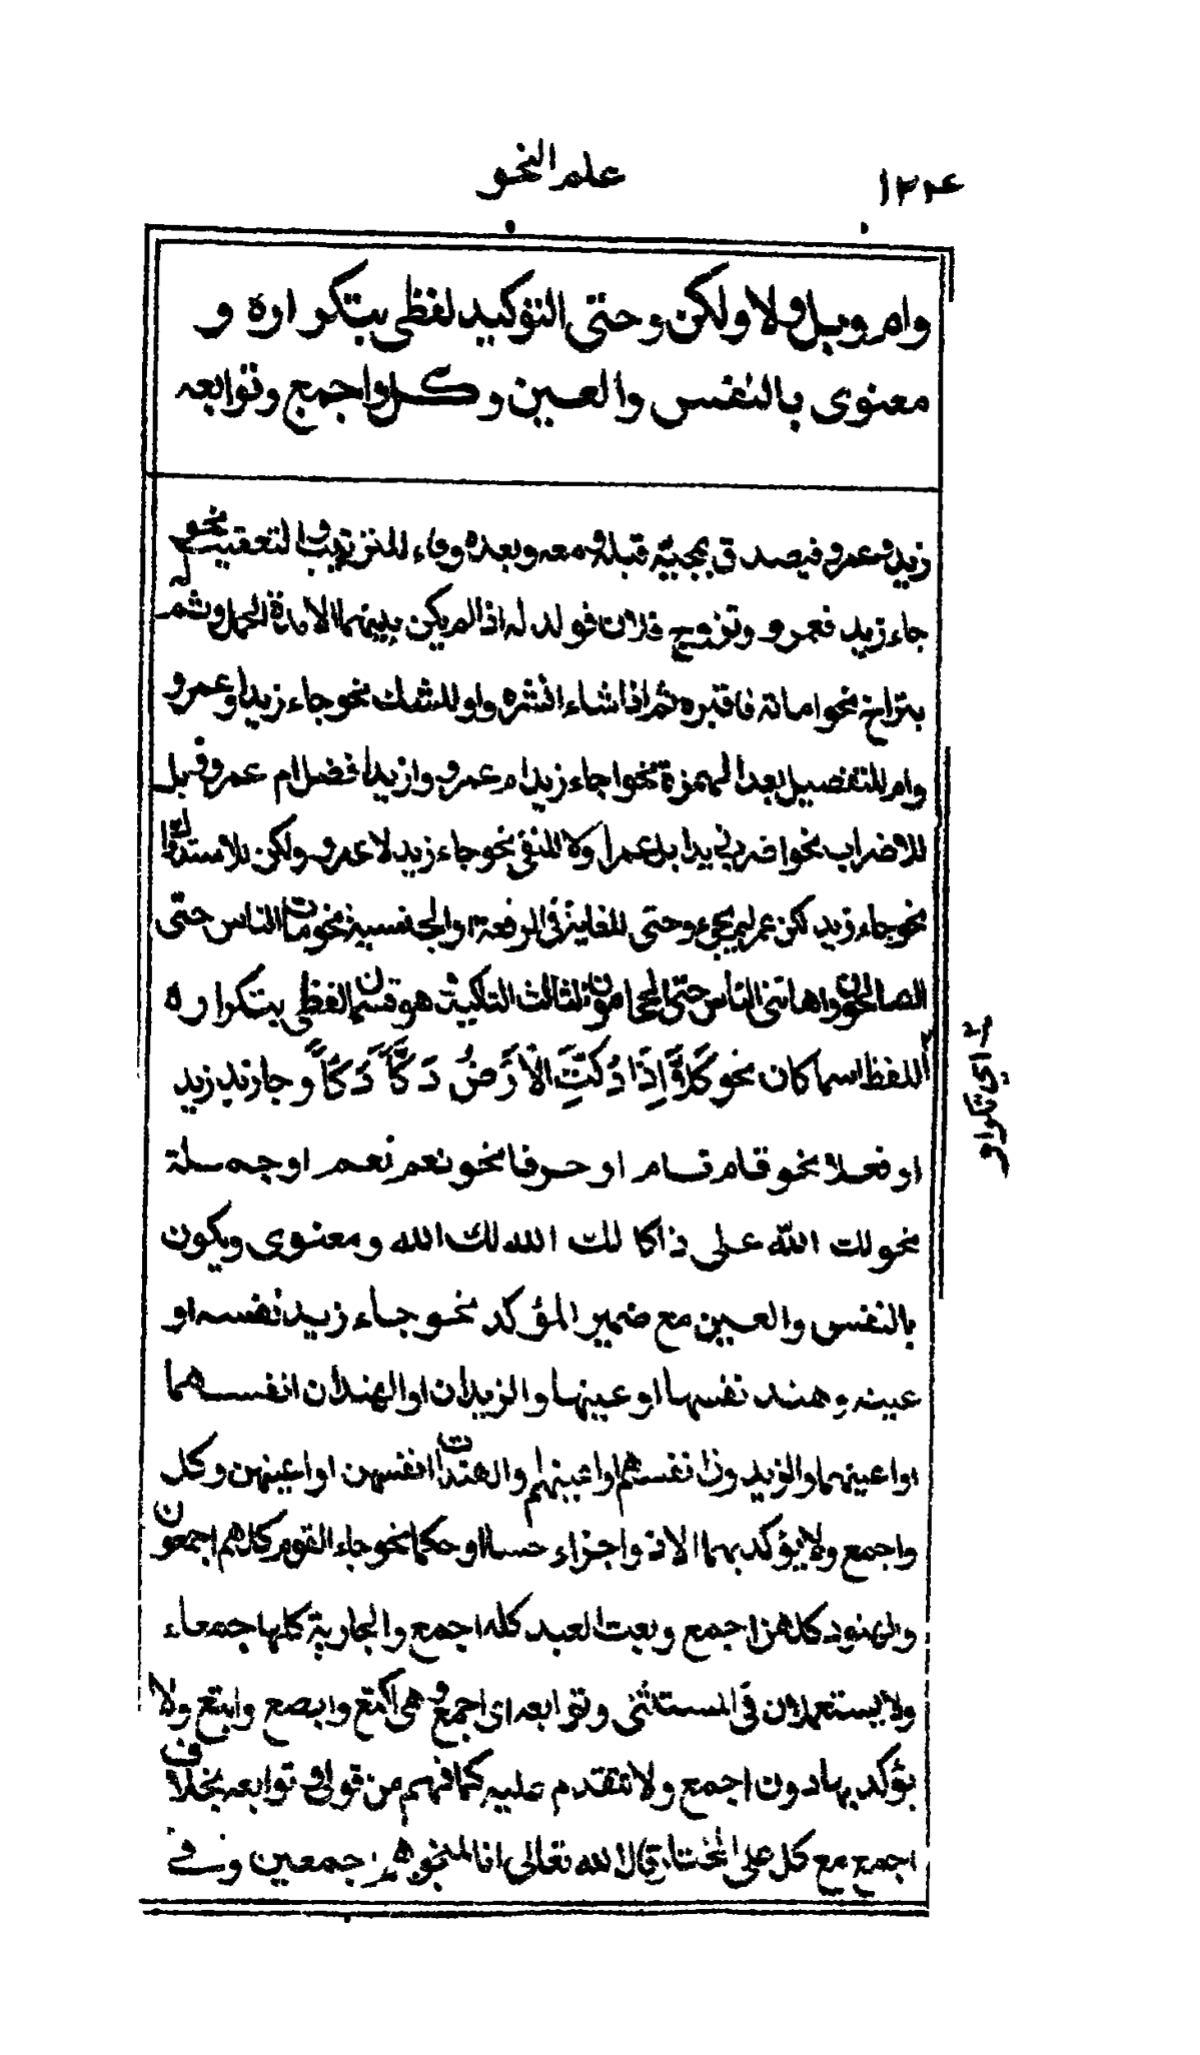 ١٢٤ علم النحو
وام وبل ولا ولكن وحتى التوكيد لفظى بتكراره و
معنوى بالنفس والعين وكل واجمع وتوابعه
زيد وعمرو فيصدق بمجيئه قبله ومعه وبعده وفاء للترتيب والتعقيب نحو
جاء زيد فعمرو وتزوج فلان فولد له اذا لم يكن بينهما الا مدة الحمل وثم له
بتراخ نحو اماته فاقبره ثم اذا شاء انشره واو للشك نحو جاء زيد او عمرو
وام للتفصيل بعد الهمزة نحو اجاء زيد ام عمرو وازيد افضل ام عمرو وبل
للاضراب نحو اضرب زيدا بل عمرا ولا للنفى نحو جاء زيد لا عمرو ولكن للاستدراك
نحو جاء زيد لكن عمر لم يجىء وحتى للغاية فى الرفعة او الخسية نحو مات الناس حتى
الصالحون واهاننى الناس حتى الحجامون الثالث التاكيد هو قسمان لفظى بتكراره
اللفظ اسما كان نحو كَلَّا إِذَا دُكَّتِ الْأَرْضُ دَكًّا دَكًّا وجاء زيد زيد
او فعلا نحو قام قام او حرفا نحو نعم نعم او جملة
نحو لك الله على ذاكا لك الله لك الله ومعنوى ويكون
بالنفس والعين مع ضمير المؤكد نحو جاء زيد نفسه او
عينه وهند نفسها او عينها والزيدان او الهندان انفسهما
او اعينهما والزيدون انفسهم او اعينهم والهندات انفسهن او اعينهن وكل
واجمع ولا يؤكد بهما الا ذو اجزاء حسا او حكما نحو جاء القوم كلهم اجمعون
والهنود كلهن اجمع وبعت العبد كله اجمع والجارية كلها جمعاء
ولا يستعملان فى المستثنى وتوابعه اى اجمع وهى اكتع وابصع وابتع ولا
يؤكد بها دون اجمع ولا تتقدم عليه كما فهم من قولى وتوابعه بخلاف
اجمع مع كل على المختار قال الله تعالى انا لمنجوهم اجمعين وفى
اى تكرار